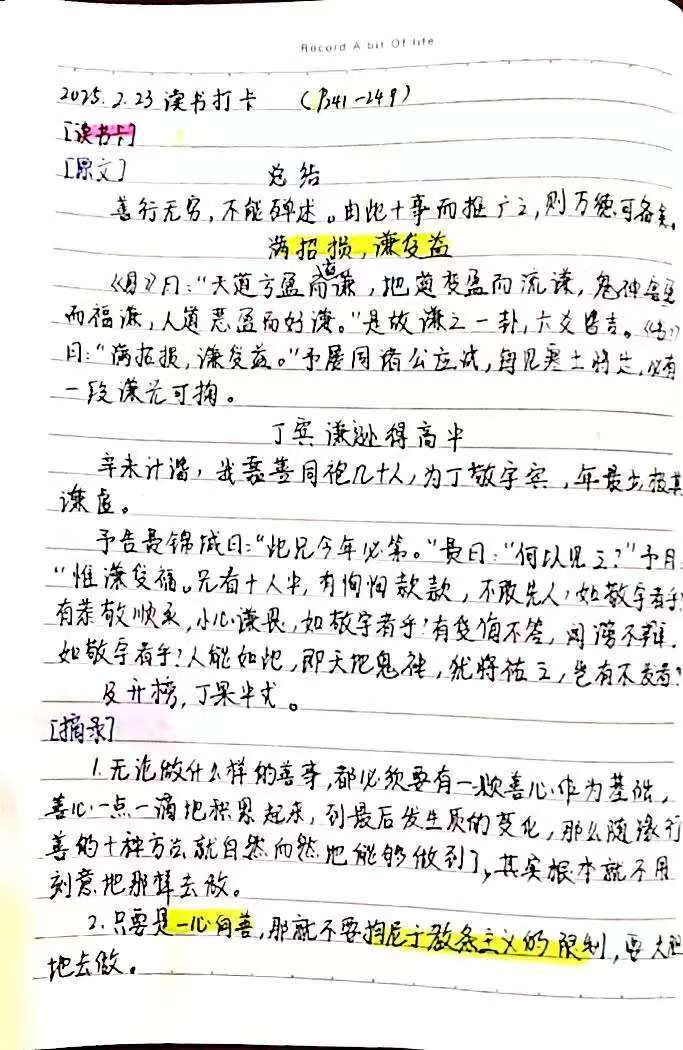 Record A bit Of life
2025.2.23 读书打卡 （P241-249）
[读书卡]
[原文] 总结
善行无穷，不能殚述。由此十事而推广之，则万德可备矣。
满招损，谦受益
《易》曰："天道亏盈而益谦，地道变盈而流谦，鬼神害盈
而福谦，人道恶盈而好谦。"是故谦之一卦，六爻皆吉。《书》
曰："满招损，谦受益。"予屡同诸公应试，每见寒士将达，必有
一段谦光可掬。
丁宾谦逊得高中
辛未计谐，我嘉善同袍几十人，为丁敬宇宾，年最少，极其
谦虚。
予告费锦坡曰："此兄今年必第。"费曰："何以见之？"予曰：
"惟谦受福。兄看十人中，有恂恂款款，不敢先人，如敬宇者乎！
有恭敬顺承，小心谦畏，如敬宇者乎！有受侮不答，闻谤不辩，
如敬宇者乎！人能如此，即天地鬼神，犹将佑之，岂有不发者？"
及开榜，丁果中式。
[摘录]
1.无论做什么样的善事，都必须要有一颗善心作为基础，
善心一点一滴地积累起来，到最后发生质的变化，那么随缘行
善的十种方法就自然而然地能够做到了，其实根本就不用
刻意地那样去做。
2.只要是一心向善，那就不要拘尼于教条主义的限制，要大胆
地去做。